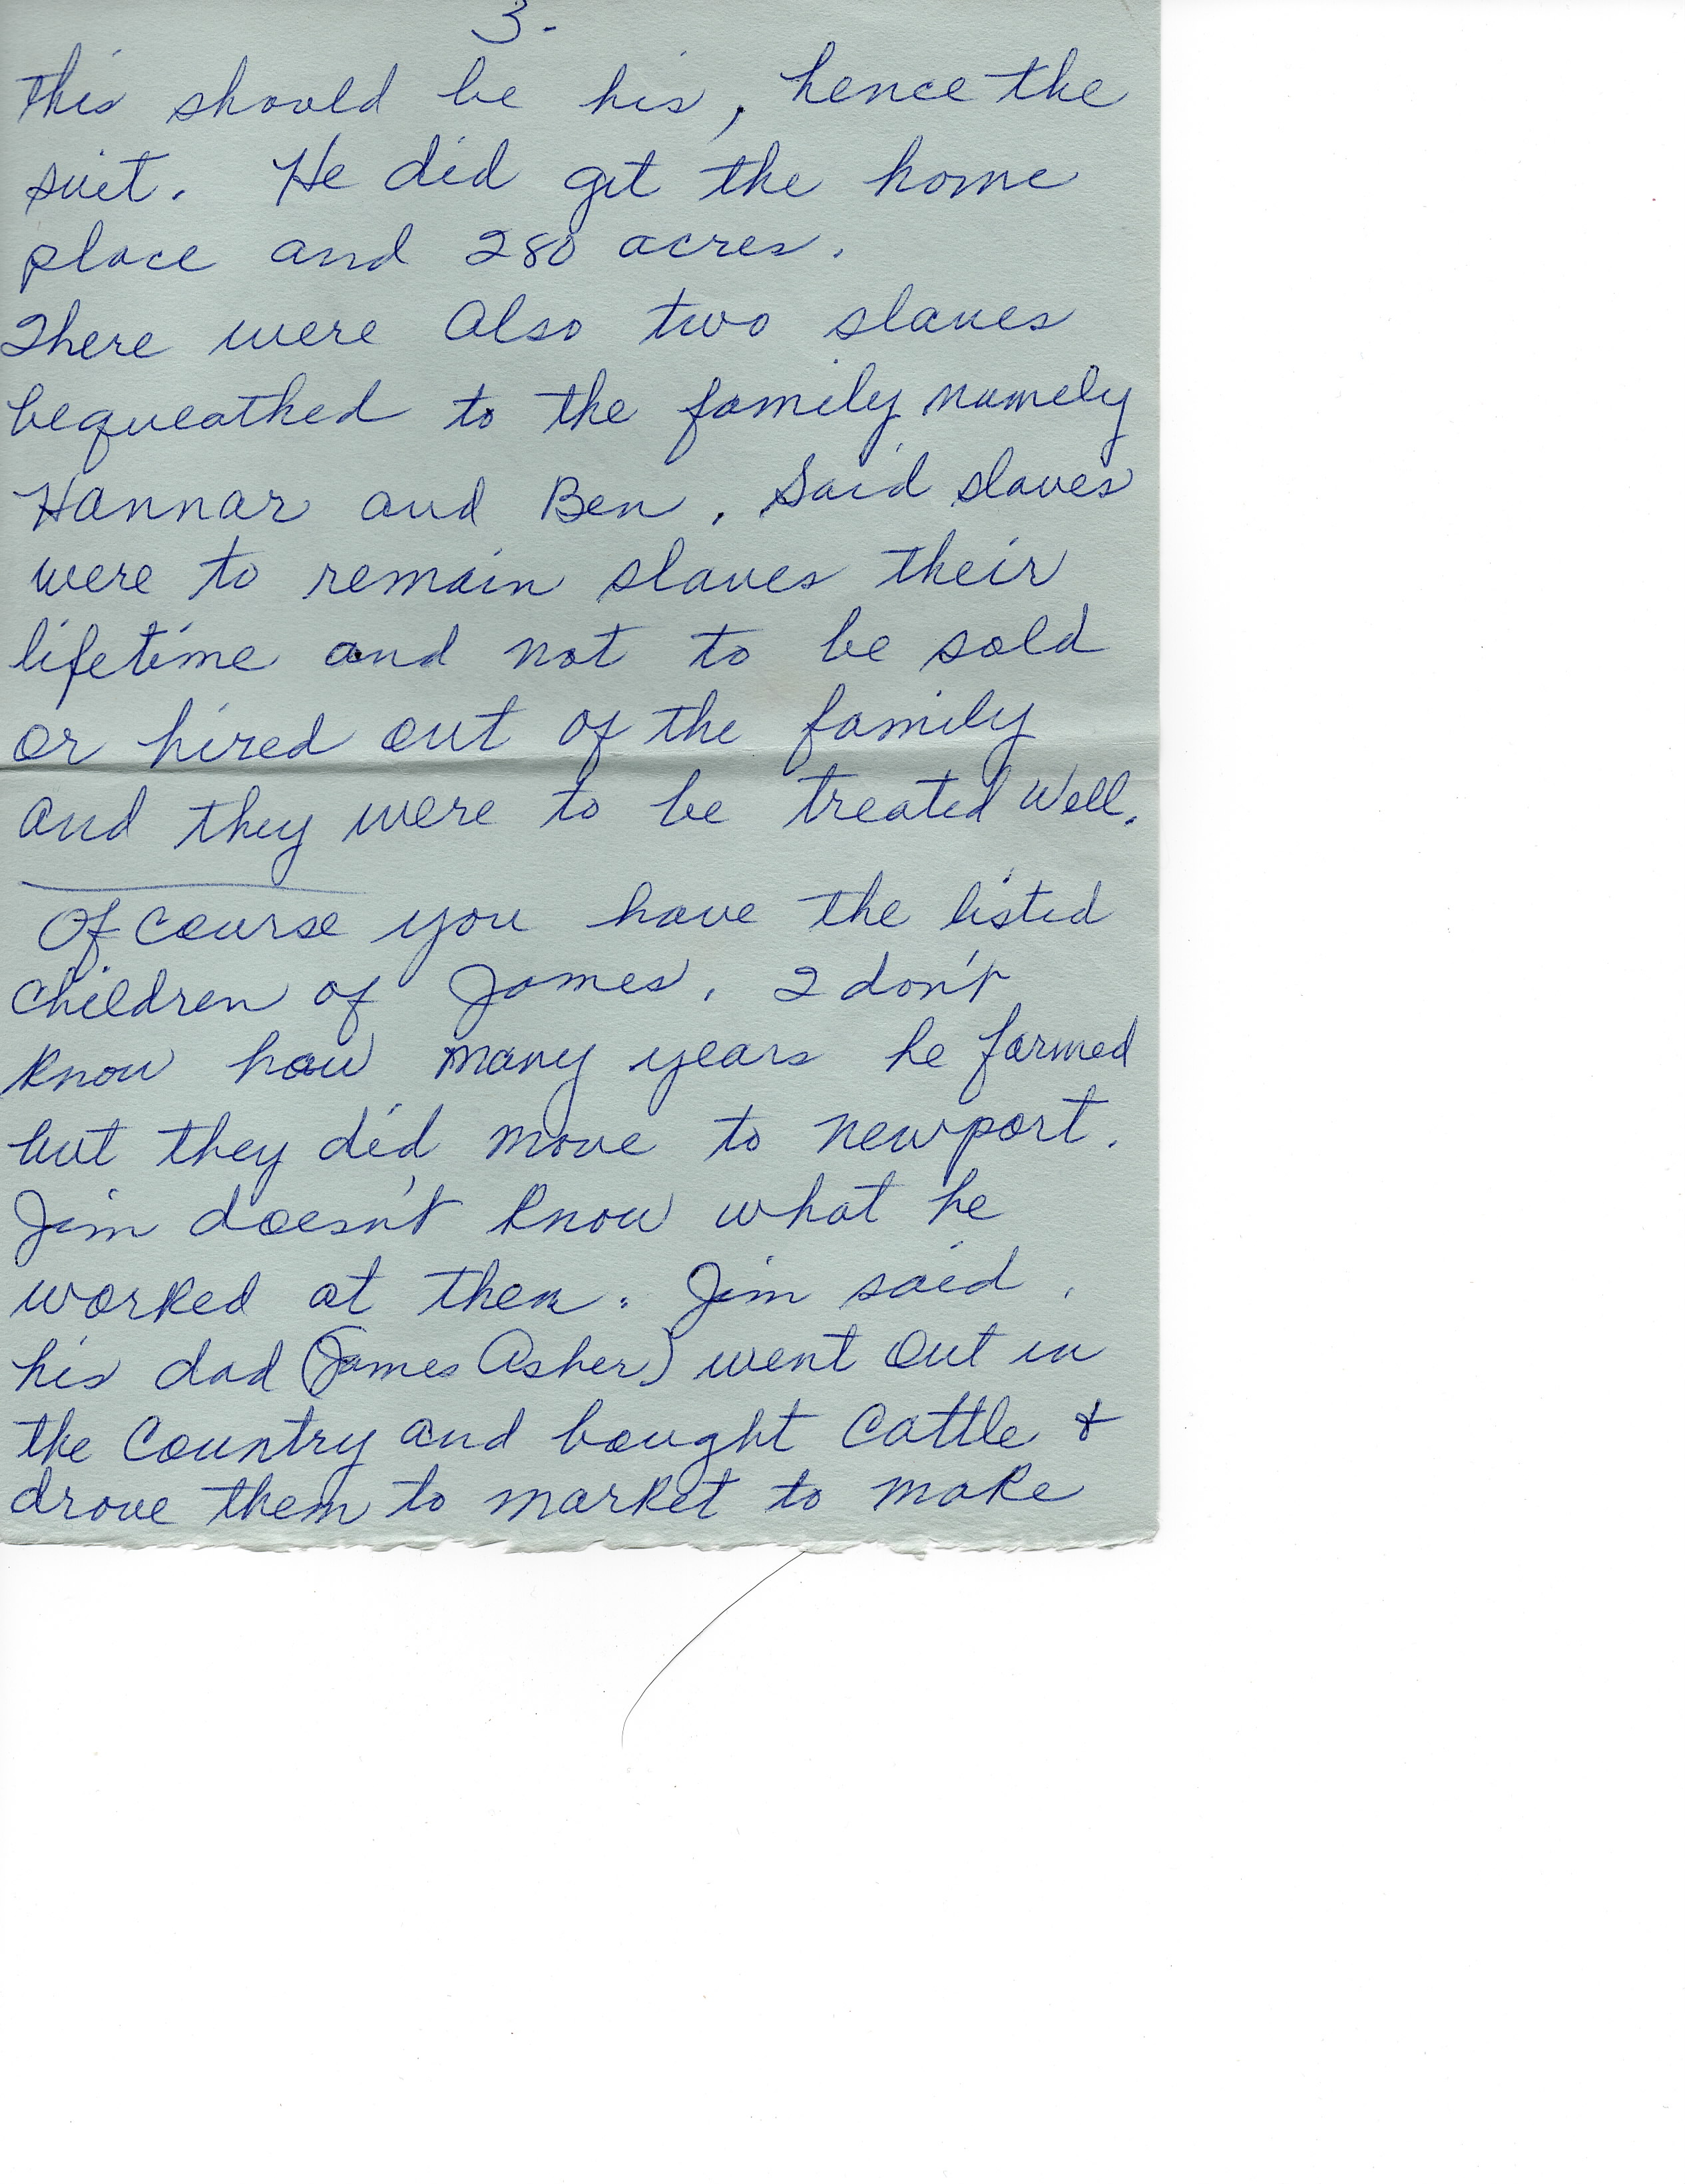 3.
This should be his, hence the
suit. He did get the home
place and 280 acres.
There were also two slaves
bequeathed to the family namely
Hannar and Ben. Said slaves
were to remain slaves their
lifetime and not to be sold
or hired out of the family
and they were to be treated well.
Of course you have the listed
children of James. I don't
know how many years he farmed
but they did move to Newport.
Jim doesn't know what he
worked at then. Jim said
his dad (James Asher) went out in
the country and bought cattle &
drove them to market to make